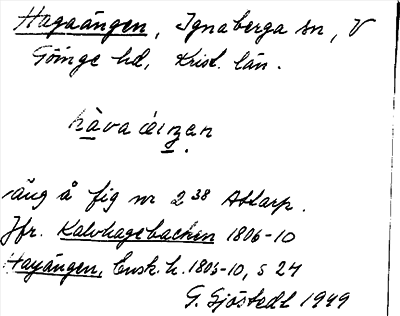 Hagaängen, Ignaberga sn, V
Göinge hd, Krist. län.
hàva áingen
äng å fig nr 2 38 Attarp.
Jfr. Kalvhagebacken 1806-10
Hagängen, Ensk. h. 1805-10, s 24
G. Sjöstedt 1949